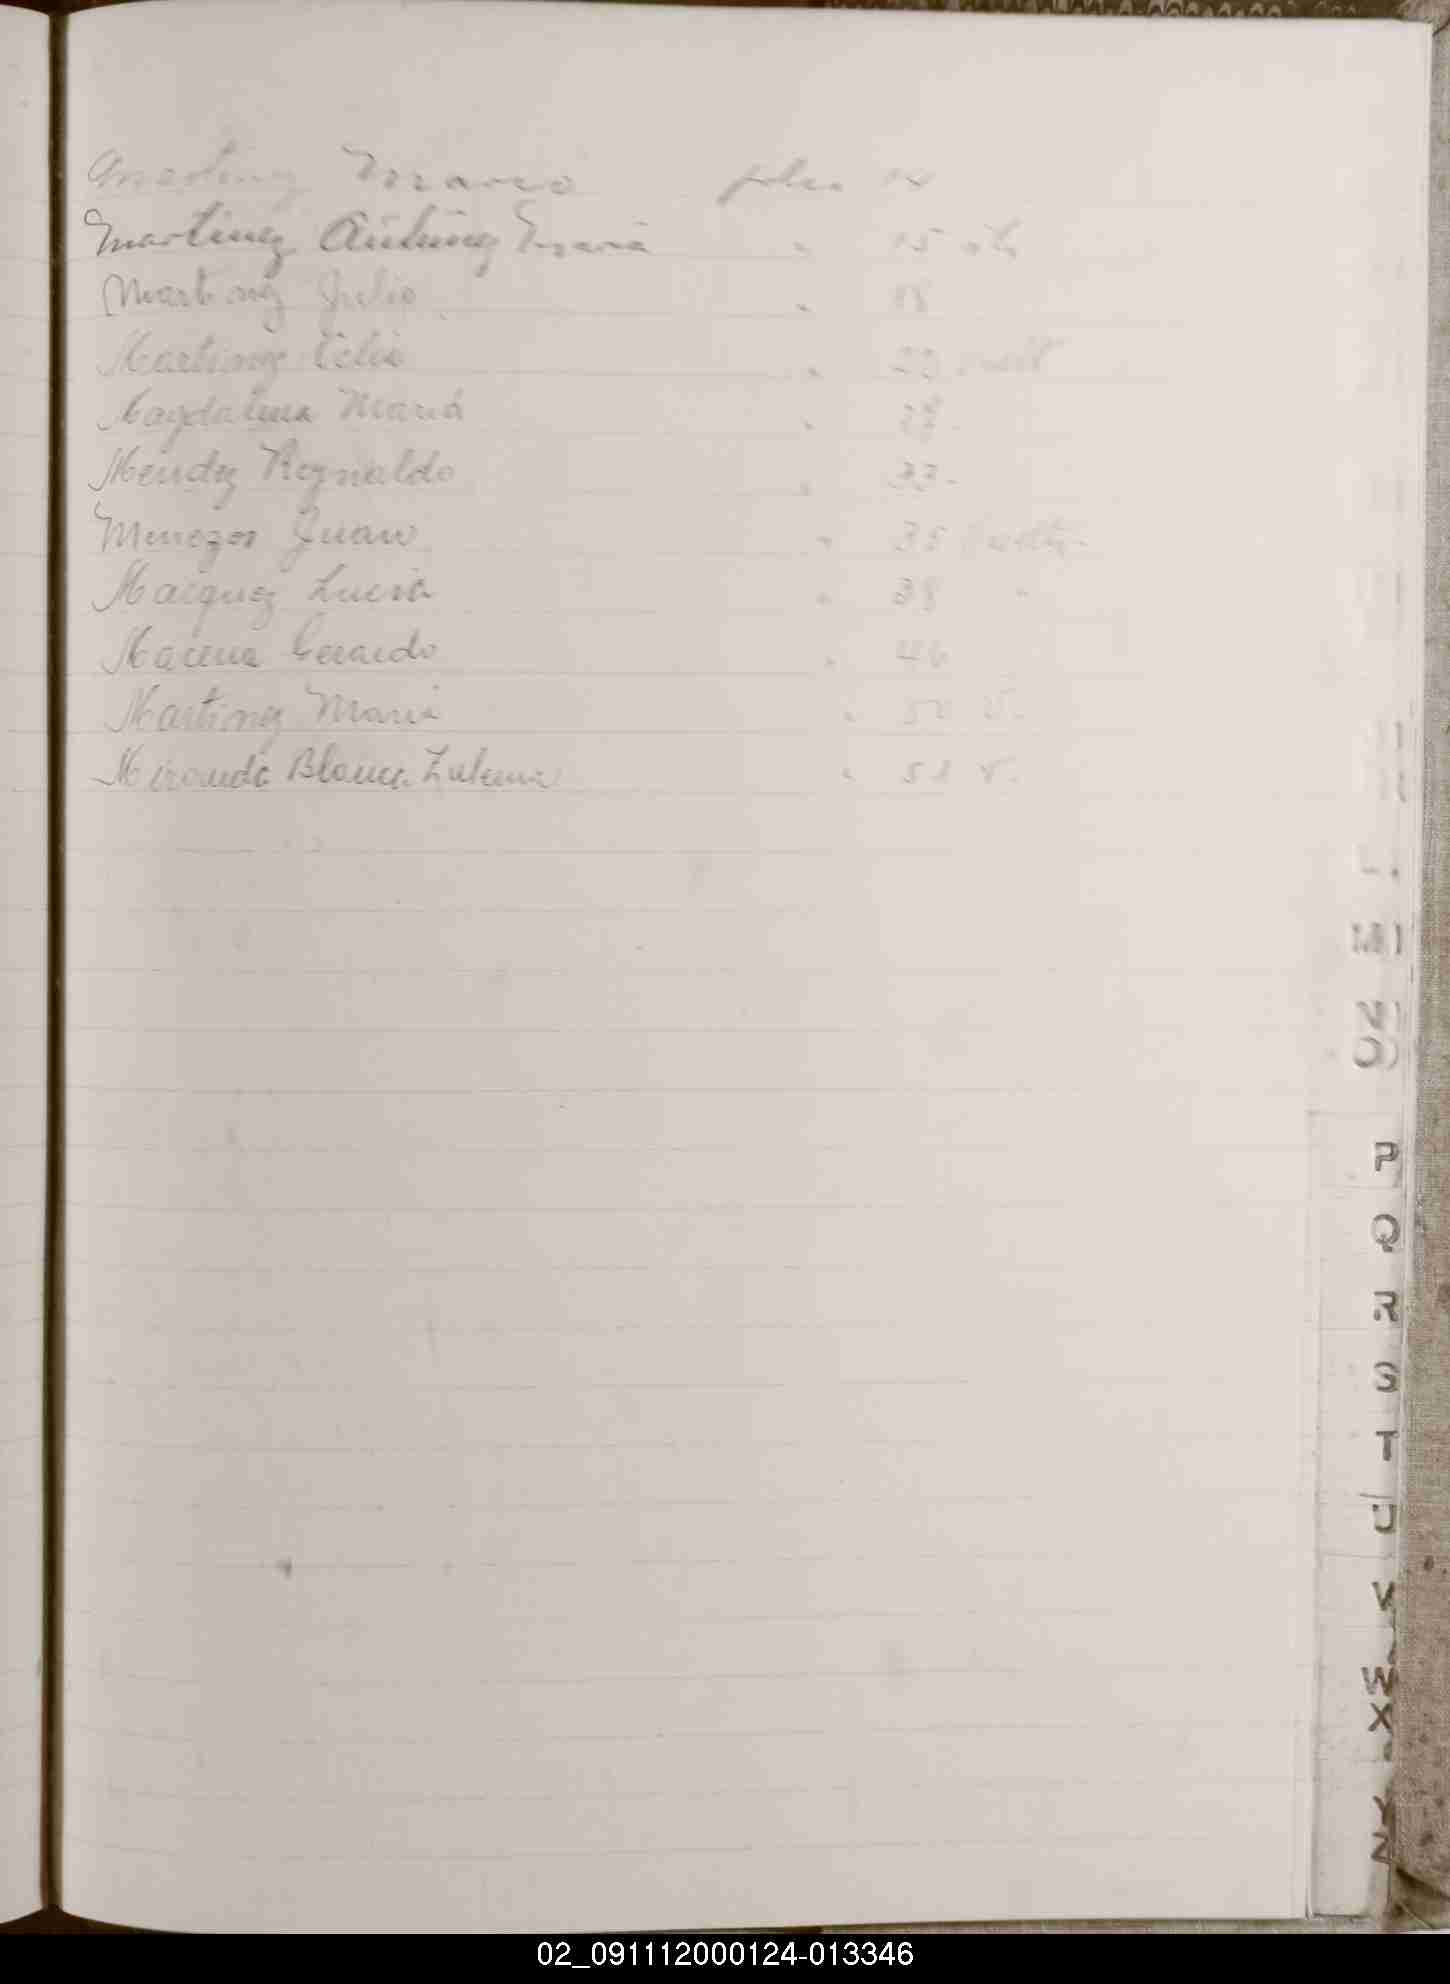 Martinez Mario folio 14
Martinez Antunez Maria " 15 vta
Martinez Julio " 18
Martinez Celia " 23 vuelt
Magdalena Maria "
Mendez Reynaldo " 33-
Menezes Juan " 35 vuelta
Marquez Lucia " 38 "
Macena Gerardo " 46
Martinez Maria " 52 V.
Miranda Blanca Zulema " 53 V.
L
M
N
O
P
Q
R
S
T
U
V
W
X
Y
Z
02_091112000124-013346